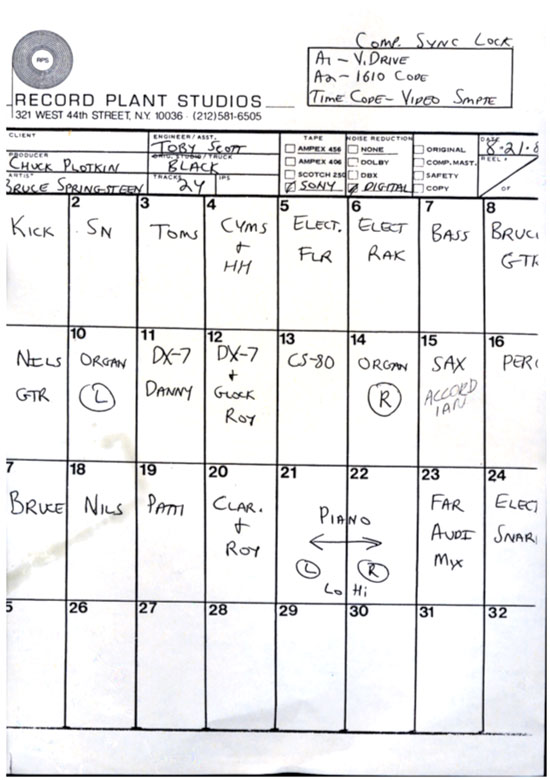 COMP. SYNC LOCK
A1 - V. DRIVE
A2 - 1610 CODE
TIME CODE - VIDEO SMPTE
RPS
RECORD PLANT STUDIOS
321 WEST 44th STREET, N.Y. 10036 · (212) 581-6505
CLIENT
ENGINEER/ASST.
TOBY SCOTT
TAPE
NOISE REDUCTION
DATE
8-21-8
AMPEX 456
NONE
ORIGINAL
PRODUCER
CHUCK PLOTKIN
BLACK
AMPEX 406
DOLBY
COMP. MAST.
REEL #
SCOTCH 250
DBX
SAFETY
ARTIST
BRUCE SPRINGSTEEN
TRACKS
24
IPS
SONY
DIGITAL
COPY
OF
2 3 4 5 6 7 8
KICK SN TOMS CYMS ELECT. ELECT BASS BRUCE
+ FLR RAK GTR
HH
10 11 12 13 14 15 16
NILS ORGAN DX-7 DX-7 CS-80 ORGAN SAX PERC
GTR L DANNY + R ACCORD
GLOCK IAN
ROY
7 18 19 20 21 22 23 24
BRUCE NILS PATTI CLAR. PIANO FAR ELECT
+ AUDI SNAR
ROY L R MIX
LO HI
5 26 27 28 29 30 31 32